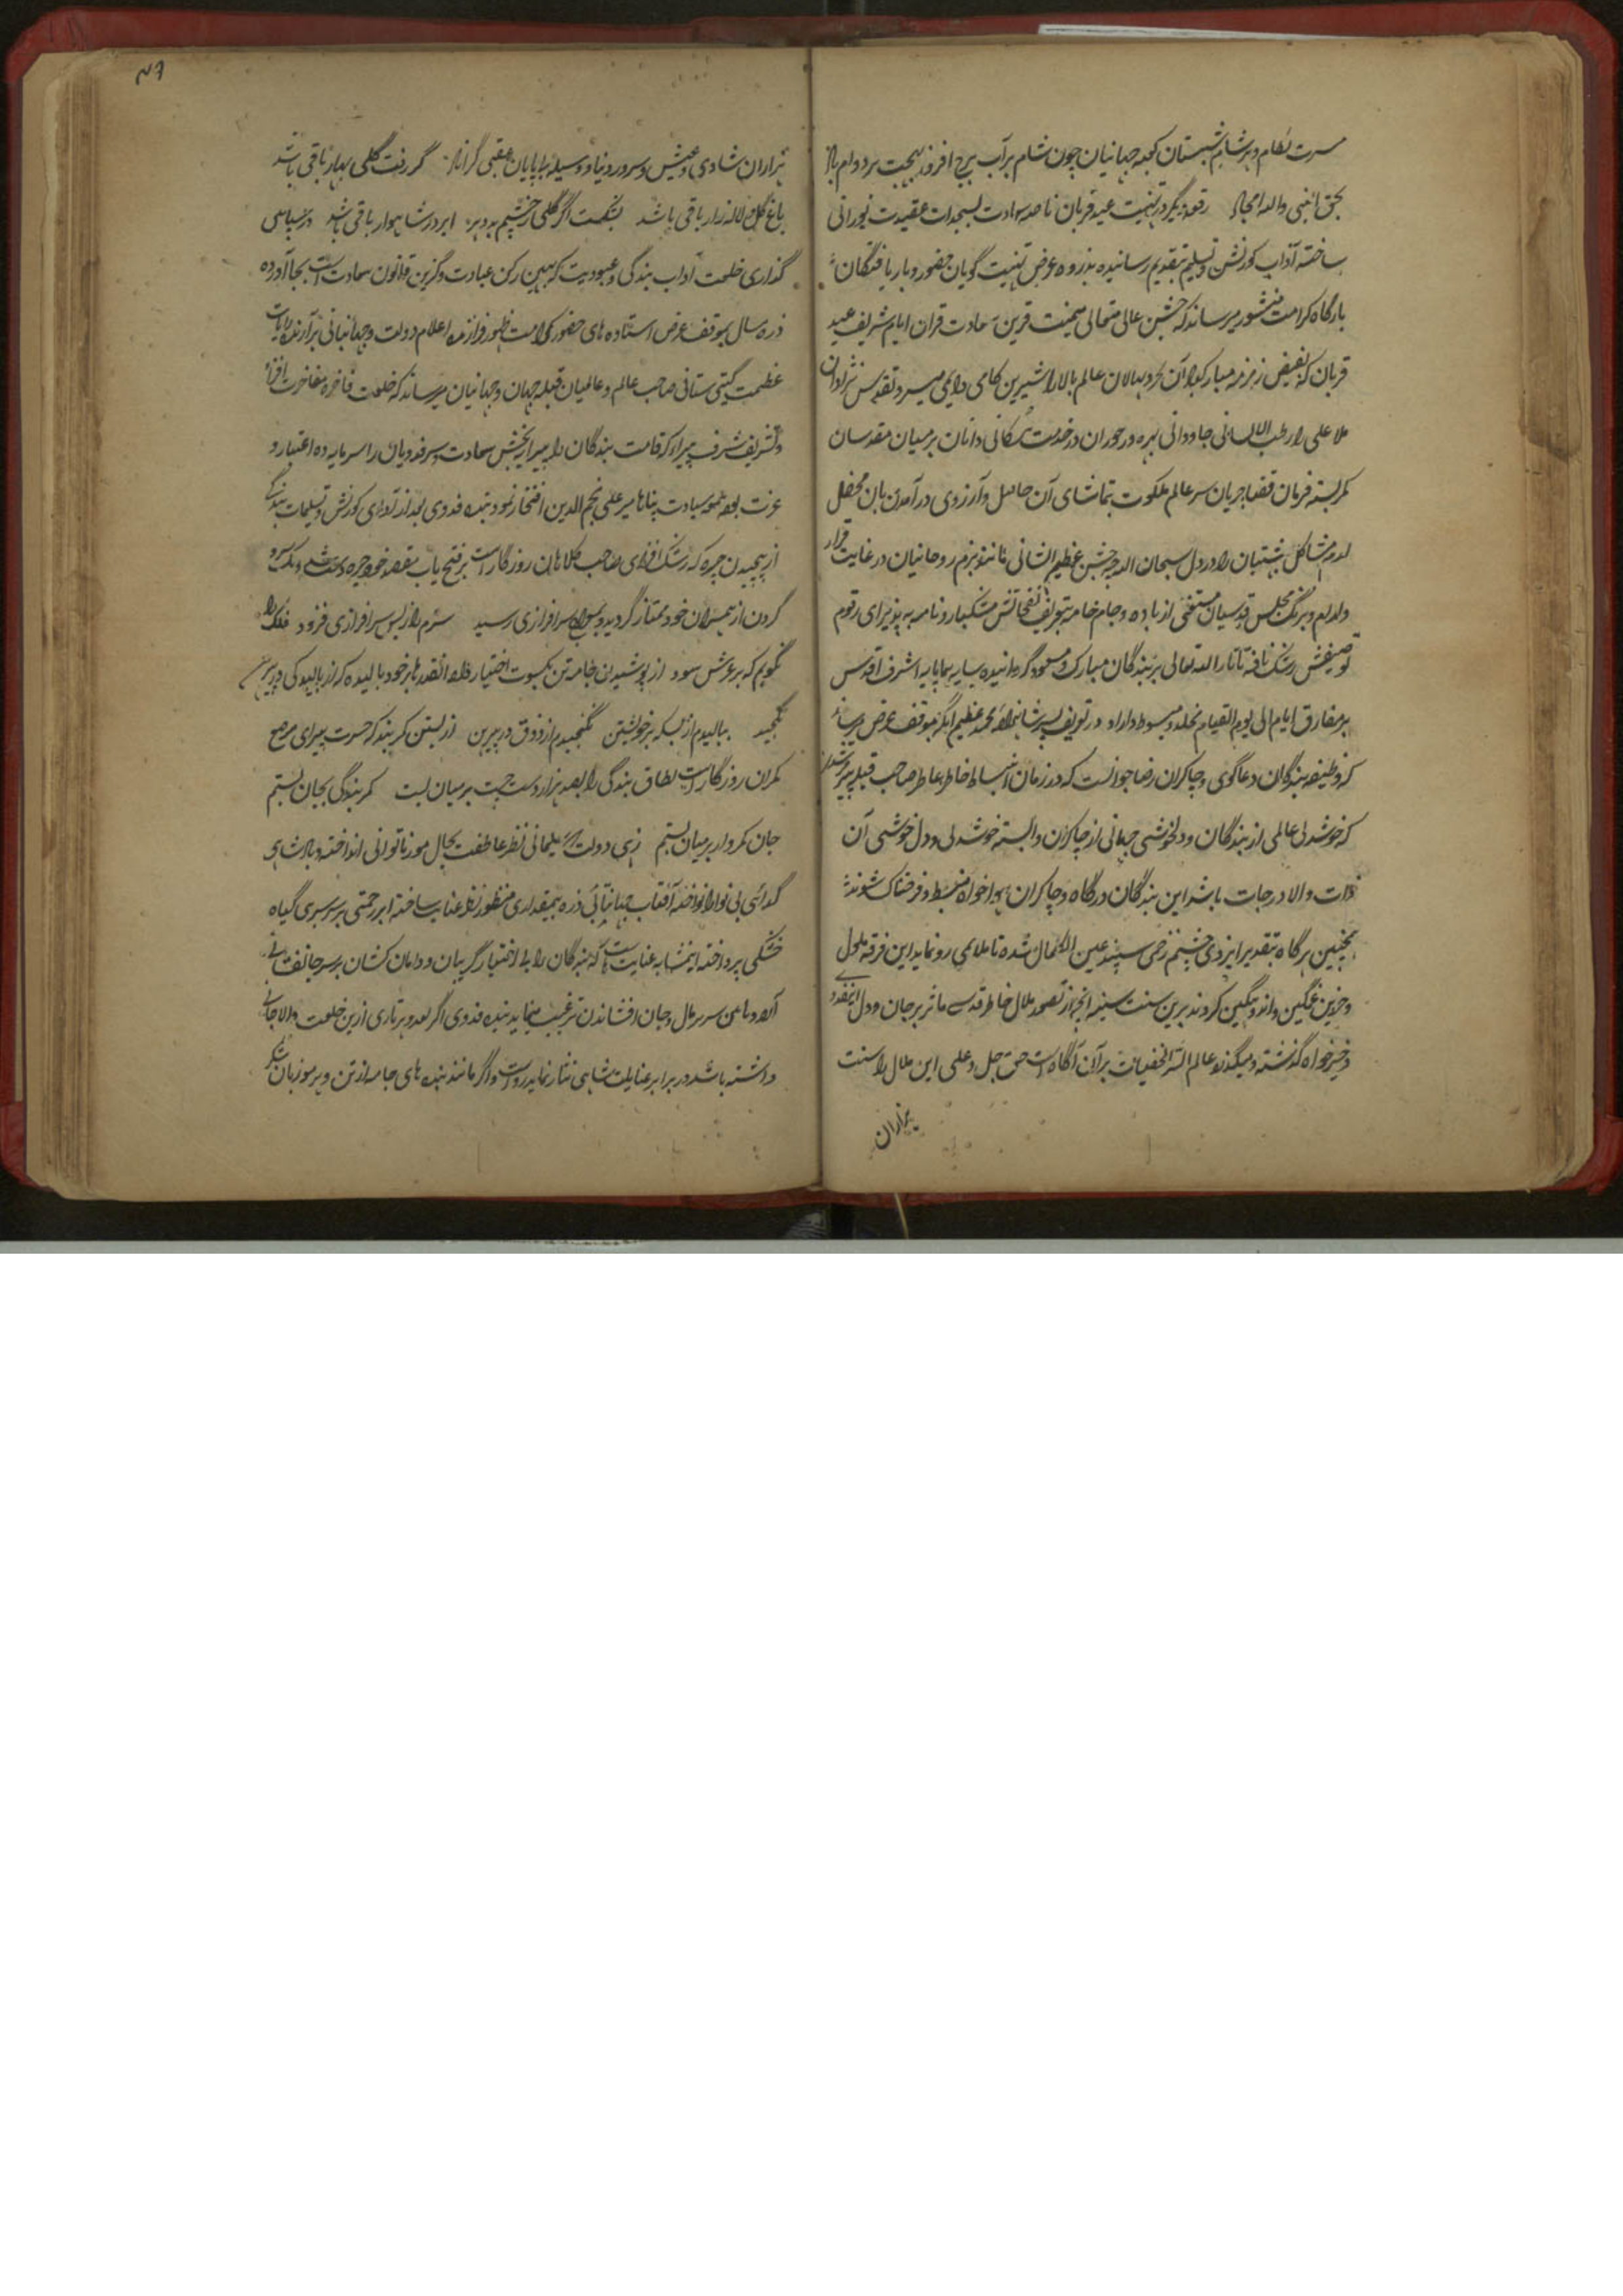 مسرت نظام و هر شام شبستان کعبه جهانیان چون شام برآب برج افروز بهجت بر دوام باد
بحق النبی واله الامجاد رقعه دیگر در تهنیت عید قربان ناصیه ارادت بسجدات عقیدت نورانی
ساخته آداب کورنش و تسلیم بتقدیم رسانیده بذروه عرض تهنیت گویان حضور و باریافتگان
بارگاه کرامت منشور میرساند که جشن عالی متعالی میمنت قرین سعادت قران ایام شریف عید
قربان که بفیض زمزمه مبارکباد آن کروبیان عالم بالا را شیرین کامی دایمی میسر و تقدس نژادان
ملا علی را رطب اللسانی جاودانی بهره ور حوران در خدمت دامان بر میان مقدسان
کمر بسته فرمان قضا جریان سر عالم ملکوت بتماشای آن حاصل و آرزوی در آمدن بان محفل
بهشتیان را در دل سبحان الله چه جشن عظیم الشانی بزم روحانیان در غایت قرار
مجلس قدسیان مستغنی از باده و جام خامه بتعریف نفحاتش مشکبار و نامه به پذیرای رقوم
توصیفش رشک نافه تاتار الله تعالی بر بندگان مبارک و مسعود گردانیده سایه هماپایه اشرف اقدس
بر مفارق ایام الی یوم القیام مخلد و مبسوط داراد در تعریف پسر شاهزاده محمد عظیم بموقف عرض میرساند
که وظیفه بندگان دعاگوی و چاکران رضاجو انست که در زمان انبساط خاطر عاطر صاحب قبله پیر مرشد
که خوشدلی عالمی از بندگان و دلخوشی جهانی از چاکران وابسته خوشدلی و دل خوشی آن
ذات والا درجات باشد این بندگان درگاه و چاکران هواخواه منبسط و فرحناک شوند
همچنین هرگاه بتقدیر ایزدی چشم زخمی سپند عین الکمال شده تا ملالمی رو نماید این فرقه ملول
و حزین غمگین و اندوهگین گردند برین سنت سنیه انچه از تصور ملال خاطر قدسی ماثر بر جان و دل اینفدوی
و خیرخواه گذشته و میگذرد عالم السر الخفیات بر آن آگاه است حق جل و علی این ملال را سنت
هزاران
۴۶
هزاران شادی و عیش و سرور دنیا و وسیله بی پایان عقبی گرداناد گر رفت گلی بهار باقی باشد
باغ گل و لاله زار باقی باشد بشکست اگر گلی ز چشم بد دهر ابر در شاهوار باقی باشد در سپاس
گذاری خلعت آداب بندگی و عبودیت که بهین رکن عبادت و گزین قانون سعادت است بجا آورده
ذره سان بموقف عرض استاده های حضور کرامت ظهور فرازنده اعلام دولت و جهانبانی برآرنده رایات
عظمت گیتی ستانی صاحب عالم و عالمیان قبله جهان و جهانیان میرساند که خلعت فاخره مفاخرت افزا
و تشریف شرف پیرا که قامت بندگان را پیرایه بخش سعادت و سر فدویان را سرمایه ده اعتبار و
عزت سیادت پناه میر علی نجم الدین افتخار نمود بنده فدوی بعد از ادای کورنش و تسلیمات بندگی
از پیچیدن چیره که رشک افزای صاحب کلاهان روزگار است بر فتح یاب مقصد خود چیره دست شد
گردن از همسران خود ممتاز گردید و بمعراج سرافرازی رسید سرم را ز بس سرافرازی فزود فلک را
نگویم که بر عرش سود از پوشیدن جامه تن بکسوت اختیار انقدر بر خود بالیده که از بالیدگی در پیرهن
نگنجید ببالیدم از بسکه بر خویشتن نگنجیدم از ذوق در پیرهن از بستن کمربند که حسرت پیرای مرصع
کمران روزگار است نطاق بندگی را بصد هزار دست چست بر میان بست کمر بندگی بجان بستم
جان کمر وار بر میان بستم زهی دولت که سلیمانی نظر عاطفت بحال مور ناتوانی انداخته و پادشاهی
گدائی بی نوا را نواخته آفتاب جهانتابی ذره بیمقداری را منظور نظر عنایت ساخته ابر رحمتی بر سرسبزی گیاه
خشکی پرداخته اینمشابه عنایت است که بندگان را بی اختیار گریبان و دامان کشان بر سر جانفشانی
آورده دامن سر بر مال و جان افشاندن ترغیب مینماید بنده فدوی اگر بعدد هر تاری ازین خلعت والا جانی
داشته باشد در برابر عنایت شاهی نثار نماید رواست و اگر مانند بنده های جامه از تن و بر موز زبان شکر